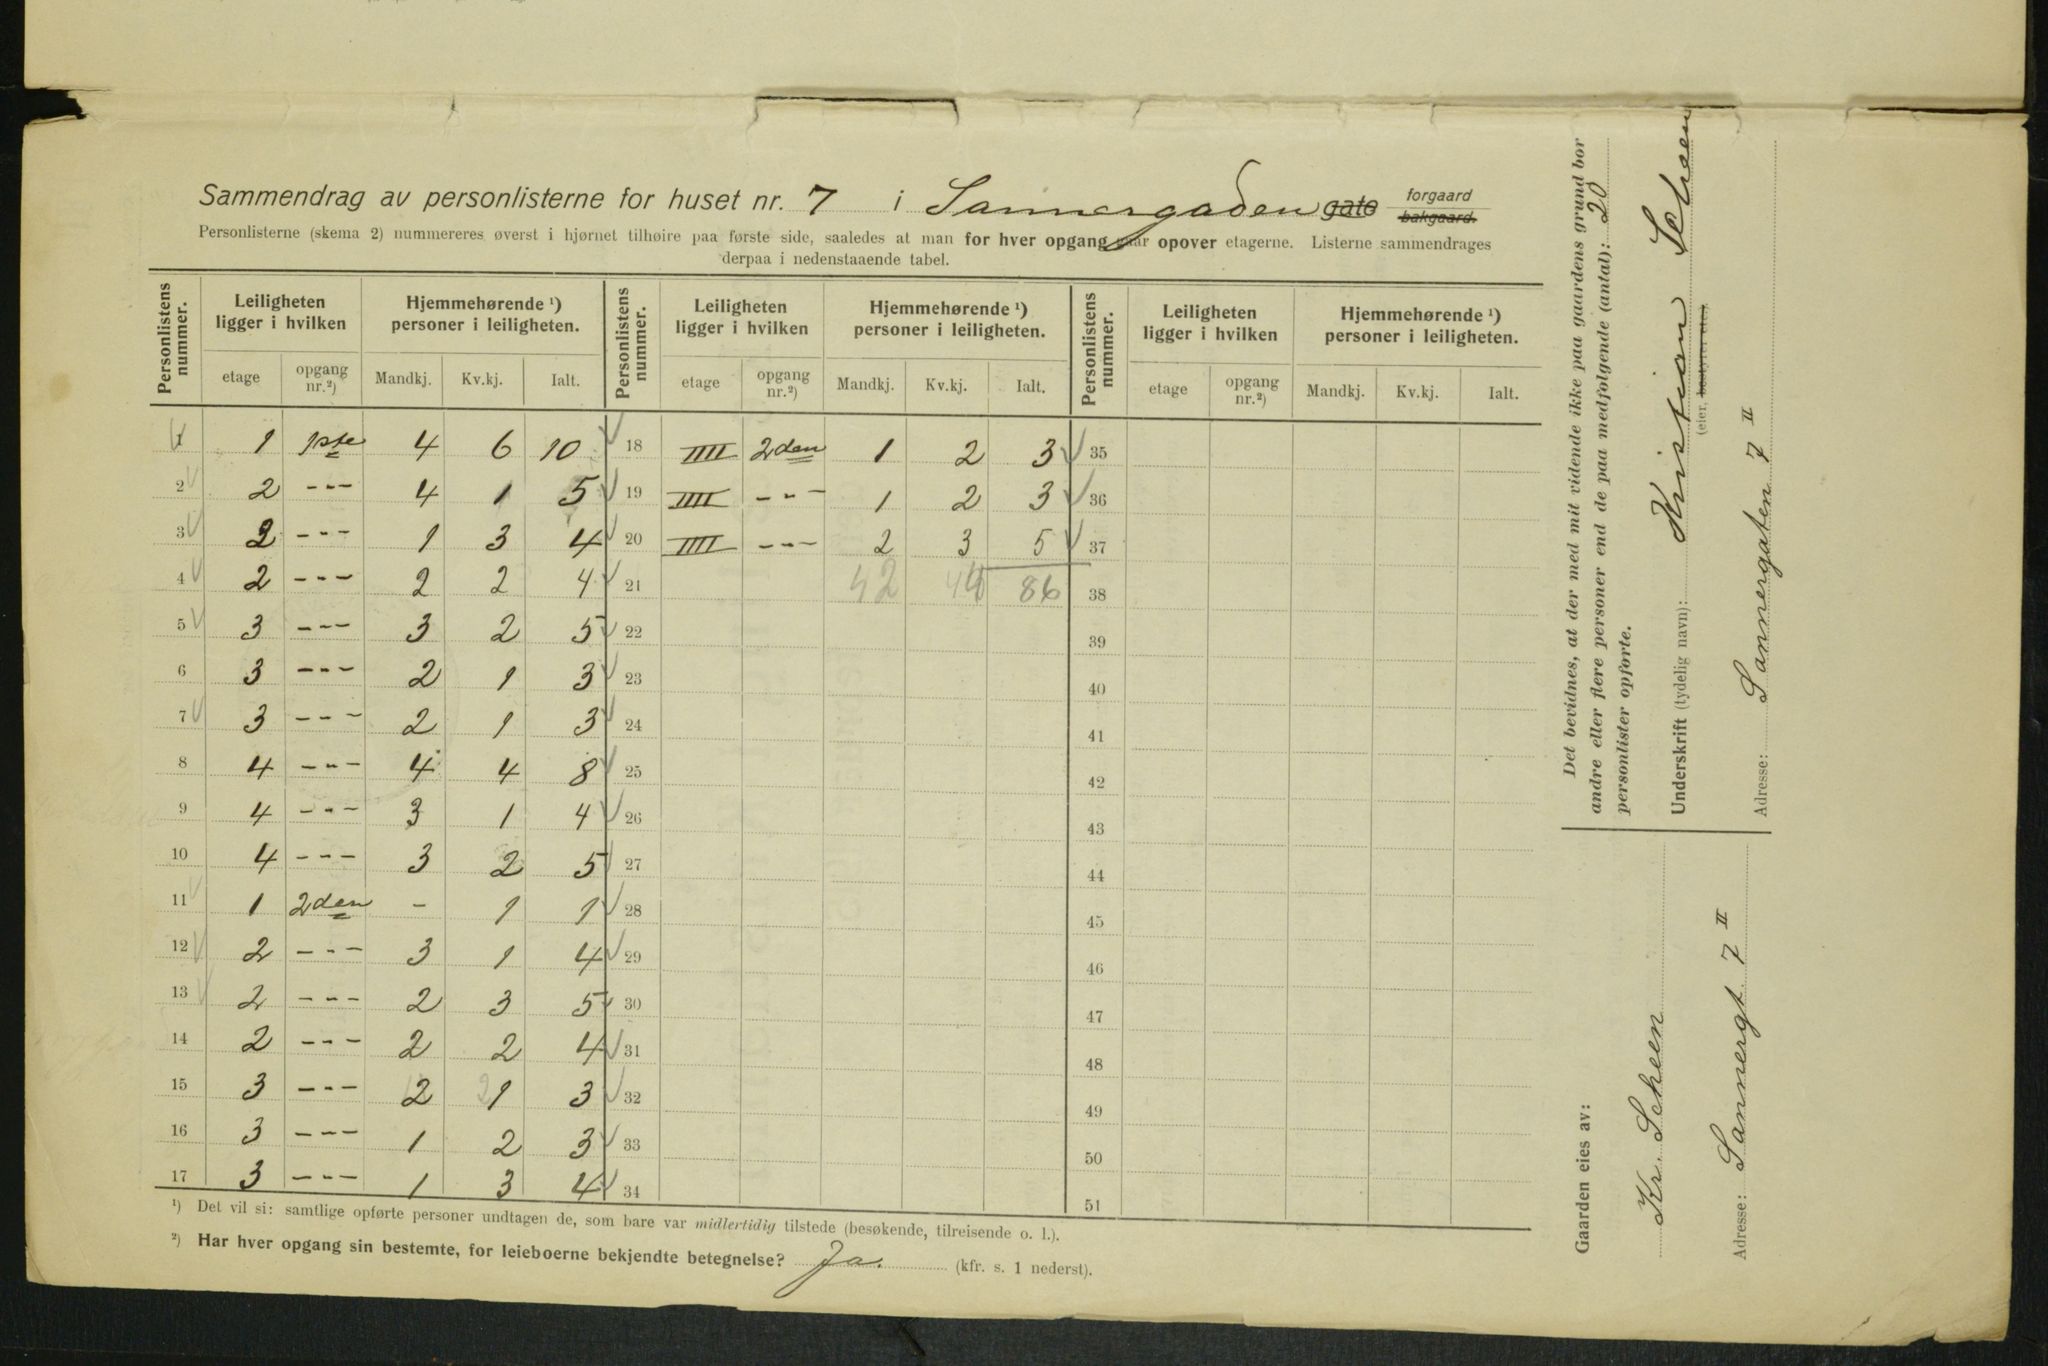 Sammendrag av personlisterne for huset nr. 7 i Sannergaden gate forgaard bakgaard.
Personlisterne (skema 2) nummereres øverst i hjørnet tilhøire paa første side, saaledes at man for hver opgang gaar opover etagerne. Listerne sammendrages
derpaa i nedenstaaende tabel.
Personlistens nummer. Leiligheten ligger i hvilken Hjemmehørende ¹) personer i leiligheten. Personlistens nummer. Leiligheten ligger i hvilken Hjemmehørende ¹) personer i leiligheten. Personlistens nummer. Leiligheten ligger i hvilken Hjemmehørende ¹) personer i leiligheten.
etage opgang nr.²) Mandkj. Kv.kj. Ialt. etage opgang nr.²) Mandkj. Kv.kj. Ialt. etage opgang nr.²) Mandkj. Kv.kj. Ialt.
1 1 1ste 4 6 10 18 IIII 2den 1 2 3 35
2 2 --- 4 1 5 19 IIII --- 1 2 3 36
3 2 --- 1 3 4 20 IIII --- 2 3 5 37
4 2 --- 2 2 4 21 42 44 86 38
5 3 --- 3 2 5 22 39
6 3 --- 2 1 3 23 40
7 3 --- 2 1 3 24 41
8 4 --- 4 4 8 25 42
9 4 --- 3 1 4 26 43
10 4 --- 3 2 5 27 44
11 1 2den - 1 1 28 45
12 2 --- 3 1 4 29 46
13 2 --- 2 3 5 30 47
14 2 --- 2 2 4 31 48
15 3 --- 2 1 3 32 49
16 3 --- 1 2 3 33 50
17 3 --- 1 3 4 34 51
¹) Det vil si: samtlige opførte personer undtagen de, som bare var midlertidig tilstede (besøkende, tilreisende o. l.).
²) Har hver opgang sin bestemte, for leieboerne bekjendte betegnelse? Ja. (kfr. s. 1 nederst).
Det bevidnes, at der med mit vidende ikke paa gaardens grund bor
andre eller flere personer end de paa medfølgende (antal): 20
personlister opførte.
Underskrift (tydelig navn): Kristian Scheen
(eier, bestyrer etc).
Adresse: Sannergaten 7 II
Gaarden eies av:
Kr. Scheen
Adresse: Sannergt 7 II